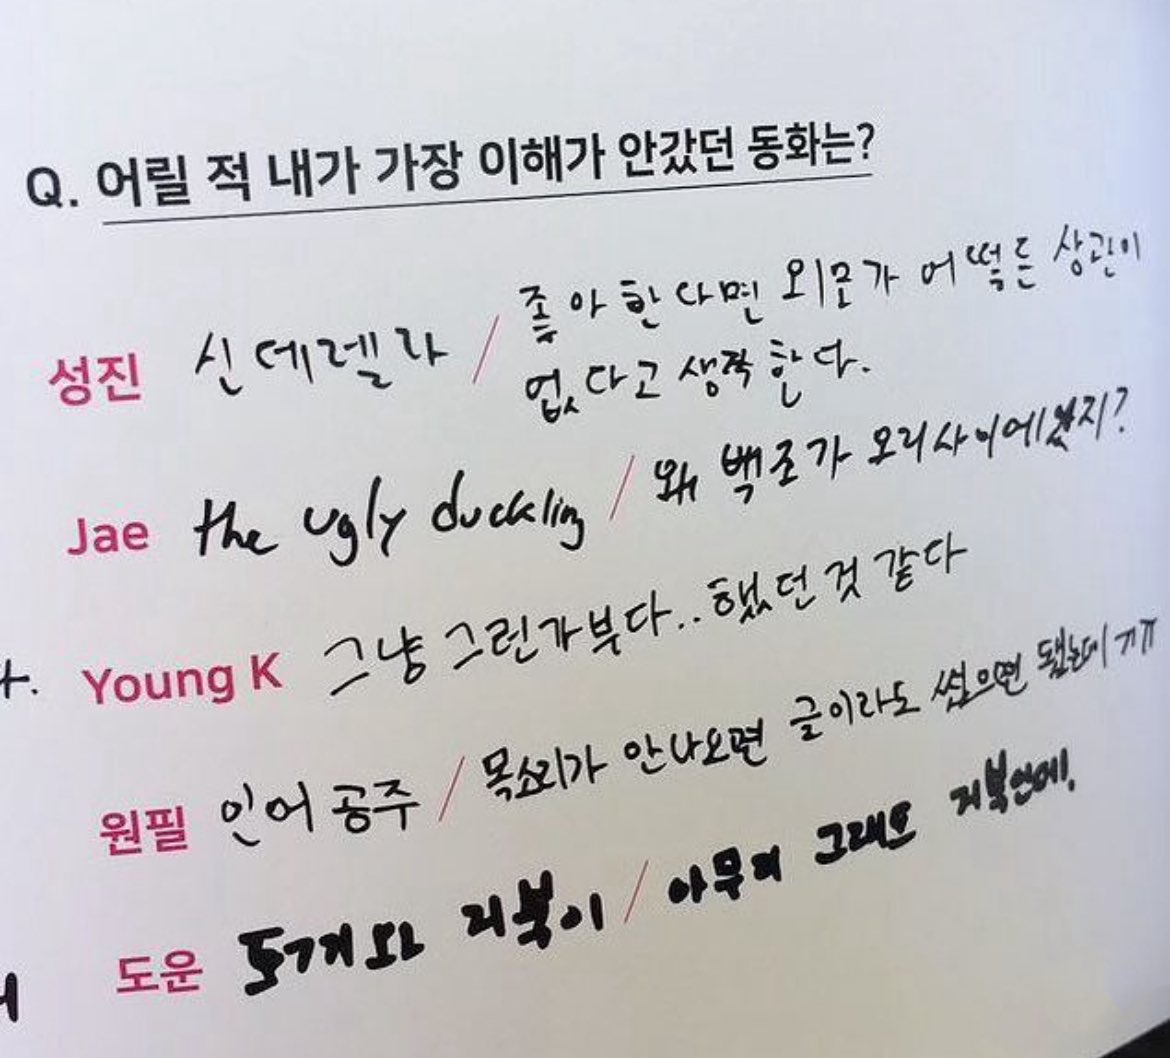 Q. 어릴 적 내가 가장 이해가 안갔던 동화는?
성진 신데렐라 / 좋아한다면 외모가 어떻든 상관이
없다고 생각한다.
Jae the ugly duckling / 왜 백조가 오리사이에있지?
Young K 그냥 그런가부다.. 했던것 같다
원필 인어공주 / 목소리가 안나오면 글이라도 썼으면 됐는데 ㅠㅠ
도운 토끼와 거북이 / 아무리 그래도 거북인데.